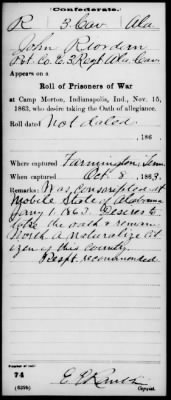 Confederate.
R 3 Cav Ala
John Riordin
Pvt. Co. E. 3 Regt Ala Cav
Appears on a
Roll of Prisoners of War
at Camp Morton, Indianapolis, Ind., Nov. 15,
1863, who desire taking the Oath of allegiance.
Roll dated not dated
186 .
Where captured Farmington, Tenn
When captured Oct 8, 1863.
Remarks: Was conscripted at
Mobile State of Alabama
Jany 1. 1863. Desires to
take the oath & remain
North. A naturalize cit
izen of this country.
Respt. recommended
Number of roll:
74
Copyist.